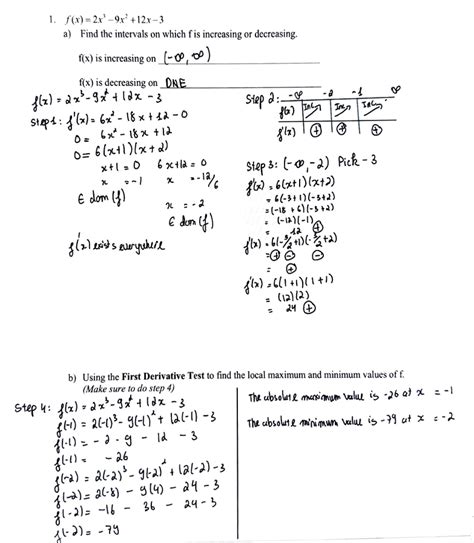 1. f(x) = 2x³ −9x² +12x −3
a) Find the intervals on which f is increasing or decreasing.
f(x) is increasing on (-∞, ∞)
f(x) is decreasing on DNE
f(x) = 2x³ - 9x² + 12x - 3
Step 1: f'(x) = 6x² - 18x + 12 - 0
0 = 6x² - 18x + 12
0 = 6(x+1)(x+2)
x+1 = 0 6x+12 = 0
x = -1 x = -12/6
∈ dom(f) x = -2
∈ dom(f)
f'(x) exists everywhere
Step 2: -∞ -2 -1 ∞
f(x) Inc↗ Inc↗ Inc↗
f'(x) + + +
Step 3: (-∞, -2) Pick -3
f'(x) = 6(x+1)(x+2)
= 6(-3+1)(-3+2)
= (-18+6)(-3+2)
= (-12)(-1)
= 12 +
f'(x) = 6(-3/2+1)(-3/2+2)
= + - -
= +
f'(x) = 6(1+1)(1+1)
= (12)(2)
= 24 +
b) Using the First Derivative Test to find the local maximum and minimum values of f.
(Make sure to do step 4)
Step 4: f(x) = 2x³ - 9x² + 12x - 3
f(-1) = 2(-1)³ - 9(-1)² + 12(-1) - 3
f(-1) = -2 - 9 - 12 - 3
f(-1) = -26
f(-2) = 2(-2)³ - 9(-2)² + 12(-2) - 3
f(-2) = 2(-8) - 9(4) - 24 - 3
f(-2) = -16 - 36 - 24 - 3
f(-2) = -79
The absolute maximum value is -26 at x = -1
The absolute minimum value is -79 at x = -2